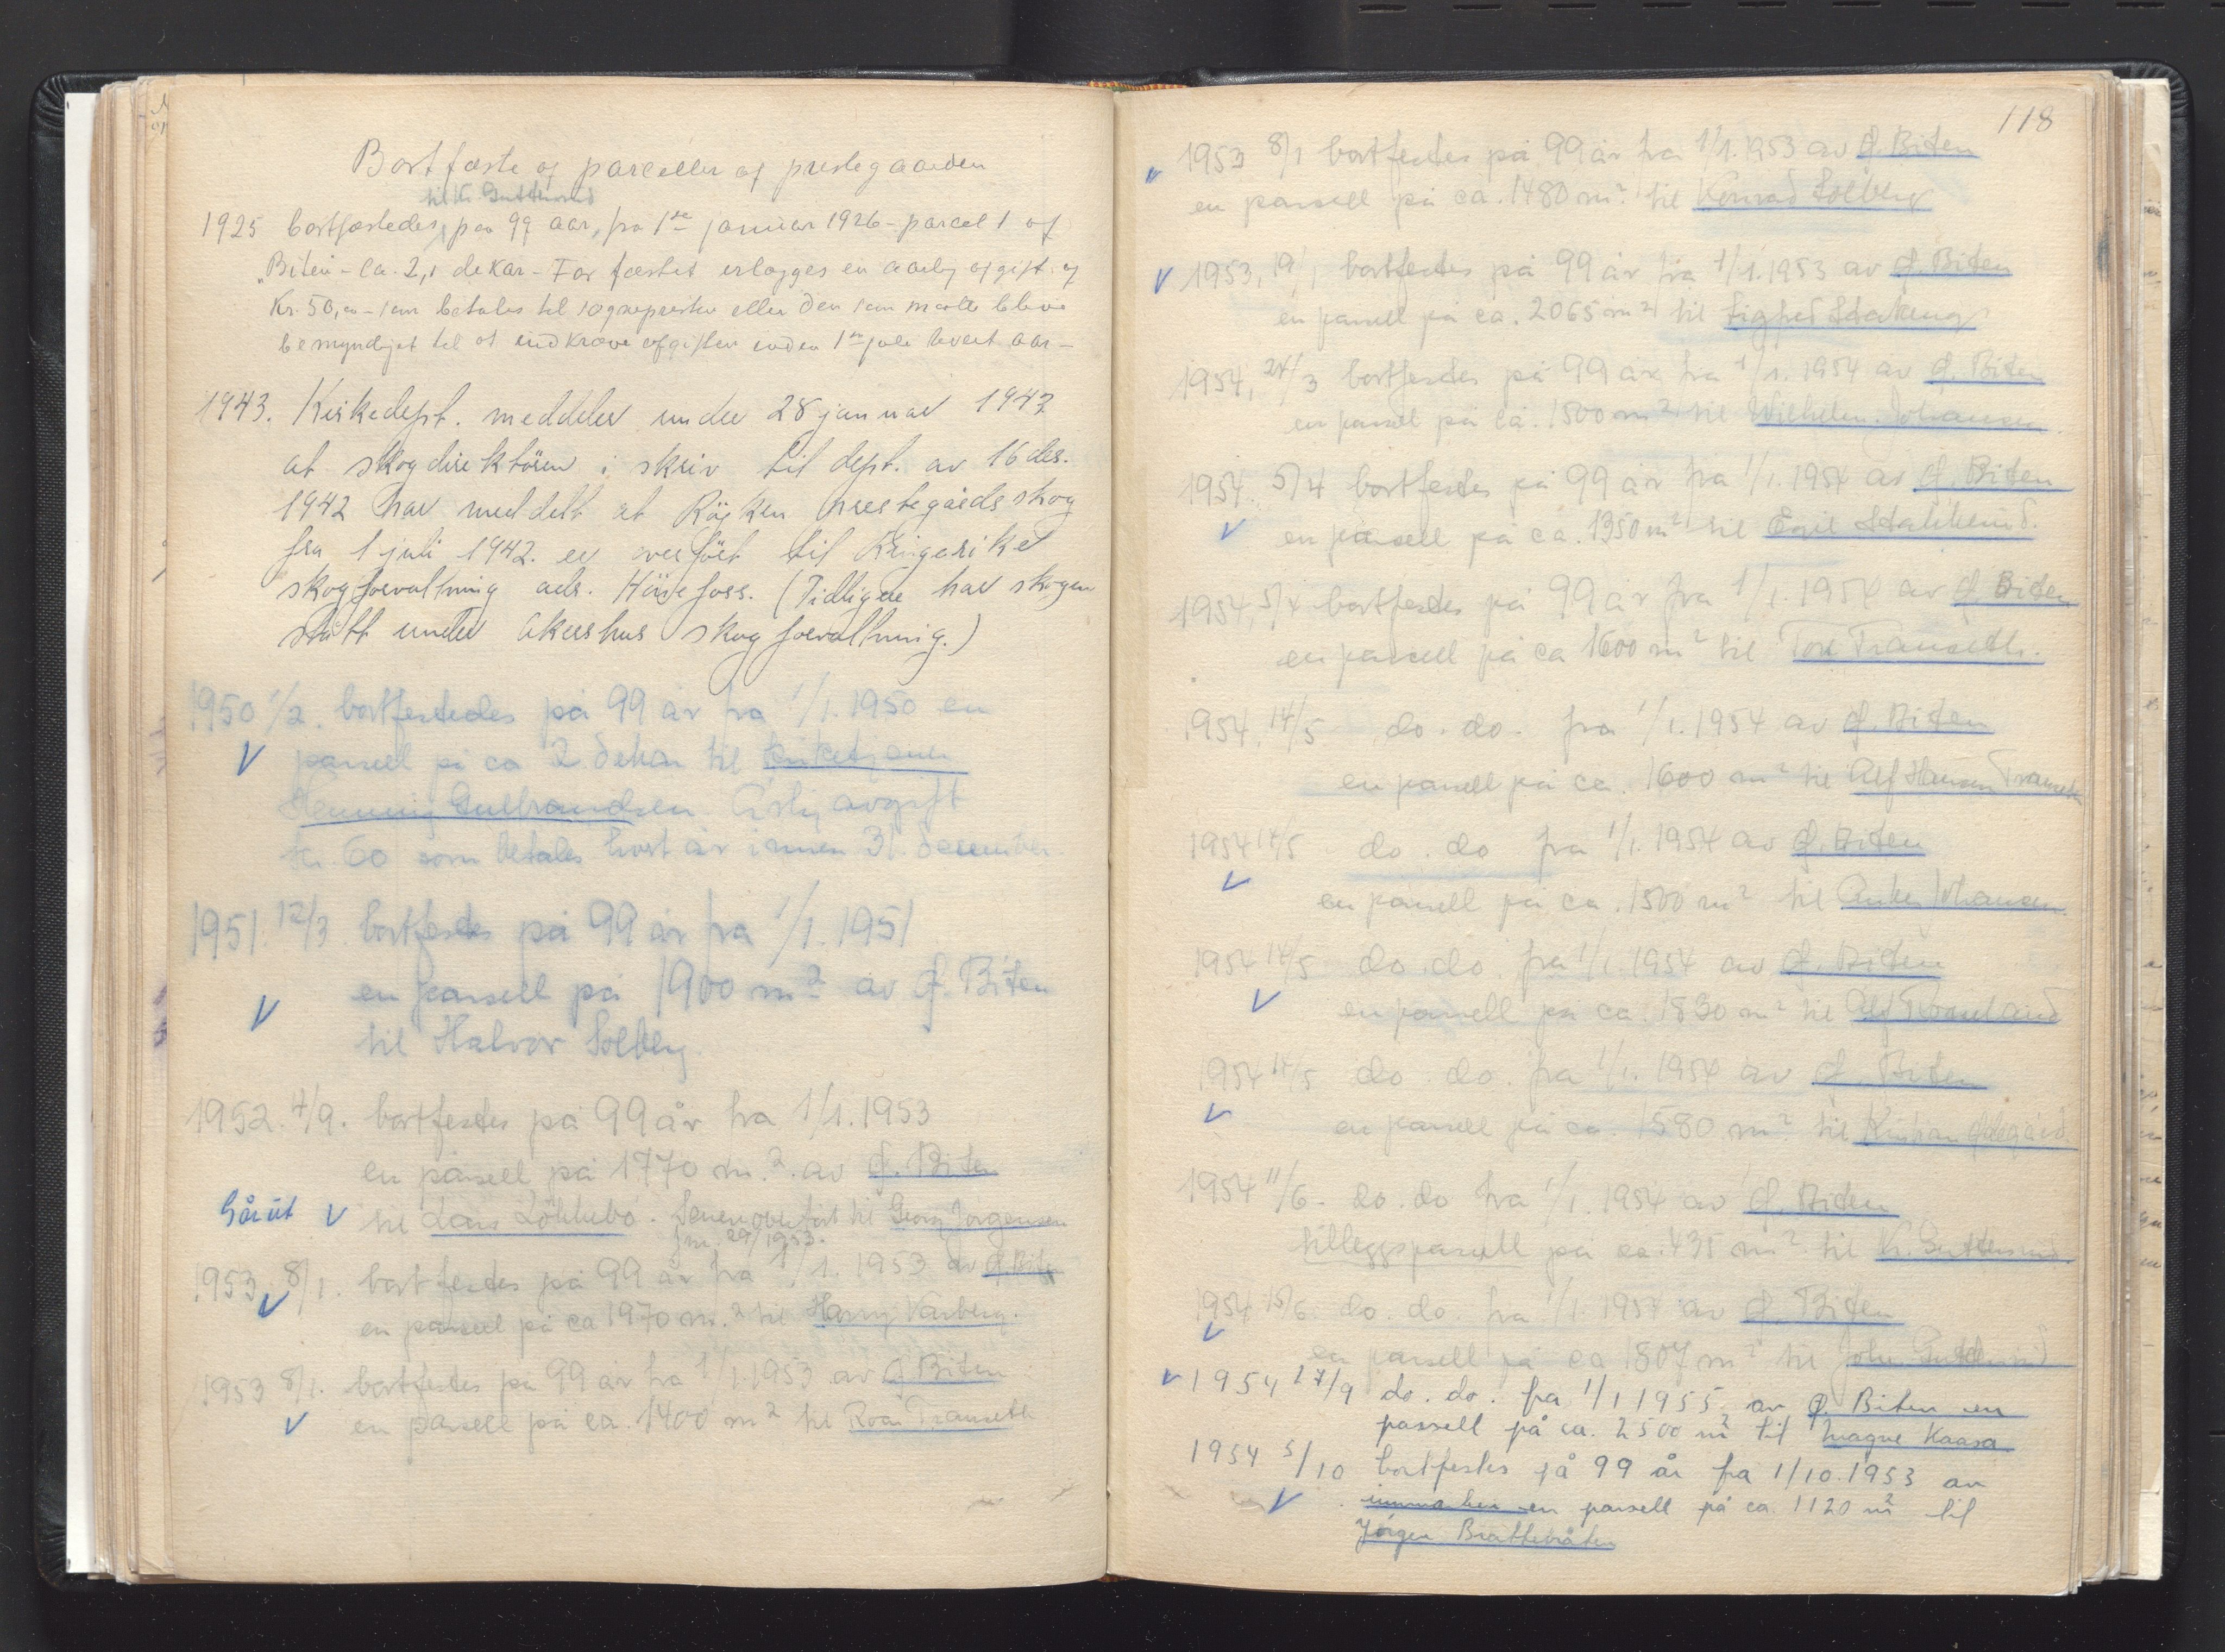 Bortfæste af parceller af prestegaarden
til K. Guttersrud
1925 bortfæstedes, paa 99 aar, fra 1ste januar 1926 - parcel 1 af
"Biten" - ca. 2,1 dekar - For fæstet erlægges en aarlig afgift af
Kr. 50,00 - som betales til sognepresten eller den som maatte blive
bemyndiget til at indkræve afgiften inden 1ste juli hvert aar -
1943. Kirkedept. meddeler under 28 januar 1943
at skogdirektören i skriv til dept. av 16 des.
1942 har meddelt at Röyken prestegårds skog
fra 1 juli 1942. er overfört til Ringerike
skogforvaltning adr. Hönefoss. (Tidligere har skogen
stått under Akershus skogforvaltning.)
1950 1/2. bortfestedes på 99 år fra 1/1. 1950 en
V parsell på ca 2. dekar til kirketjener
Henning Gulbrandsen. Årlig avgift
kr. 60 som betales hvert år innen 31. december
1951. 12/3. bortfestes på 99 år fra 1/1. 1951
en parsell på 1900 m² av f. Biten
V til Halvor Solberg.
1952. 4/9. bortfestes på 99 år fra 1/1. 1953
en parsell på 1770 m². av f. Biten
Går ut V til Lars Løkkebø. Senere overført til Georg Jørgensen
1953.
1953. 8/1. bortfestes på 99 år fra 1/1. 1953 av f. Biten
V en parsell på ca 1970 m.² til Harry Varberg.
1953 8/1. bortfestes på 99 år fra 1/1. 1953 av f. Biten
V en parsell på ca. 1400 m² til Roar Transeth
118
1953 8/1 bortfestes på 99 år fra 1/1. 1953 av f. Biten
V en parsell på ca. 1480 m² til Konrad Solberg
V 1953, 19/1 bortfestes på 99 år fra 1/1. 1953 av f. Biten
en parsell på ca. 2065 m² til
1954, 24/3 bortfestes på 99 år fra 1/1. 1954 av f. Biten
en parsell på ca. 1500 m² til Wilhelm Johansen.
1954. 5/4 bortfestes på 99 år fra 1/1. 1954 av f. Biten
V en parsell på ca. 1350 m² til Egil
1954, 5/4 bortfestes på 99 år fra 1/1. 1954 av f. Biten
en parsell på ca 1600 m² til Tore Transeth.
1954, 14/5 do. do. fra 1/1. 1954 av f. Biten
en parsell på ca. 1600 m² til Alf Hansen Transeth
1954 14/5 do. do fra 1/1. 1954 av f. Biten
V en parsell på ca. 1500 m² til Anker Johansen.
1954 14/5 do. do. fra 1/1. 1954 av f. Biten
V en parsell på ca. 1830 m² til Alf
1954 14/5 do. do. fra 1/1. 1954 av f. Biten
V en parsell på ca. 1580 m² til Kristian Ødegård
1954 11/6. do. do fra 1/1. 1954 av f. Biten
tilleggsparsell på ca. 435 m² til K. Guttersrud.
1954 15/6. do. do. fra 1/1. 1954 av f. Biten
V en parsell på ca 1807 m² til John Guttersrud
V 1954 17/9 do. do. fra 1/1 1955. av f. Biten en
parsell på ca. 2500 m² til Magne Kaasa.
1954 5/10 bortfestes på 99 år fra 1/10. 1953 av
V en parsell på ca. 1120 m² til
Jörgen Bratteråten